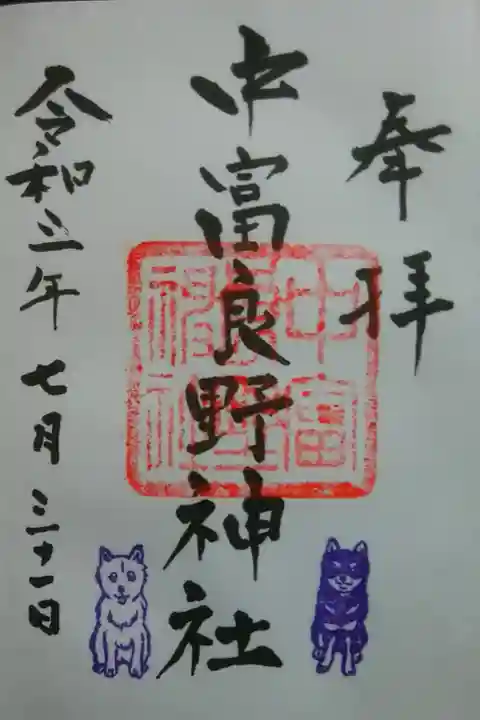 奉拝
中富良野神社
中富良野神社
令和三年七月三十一日